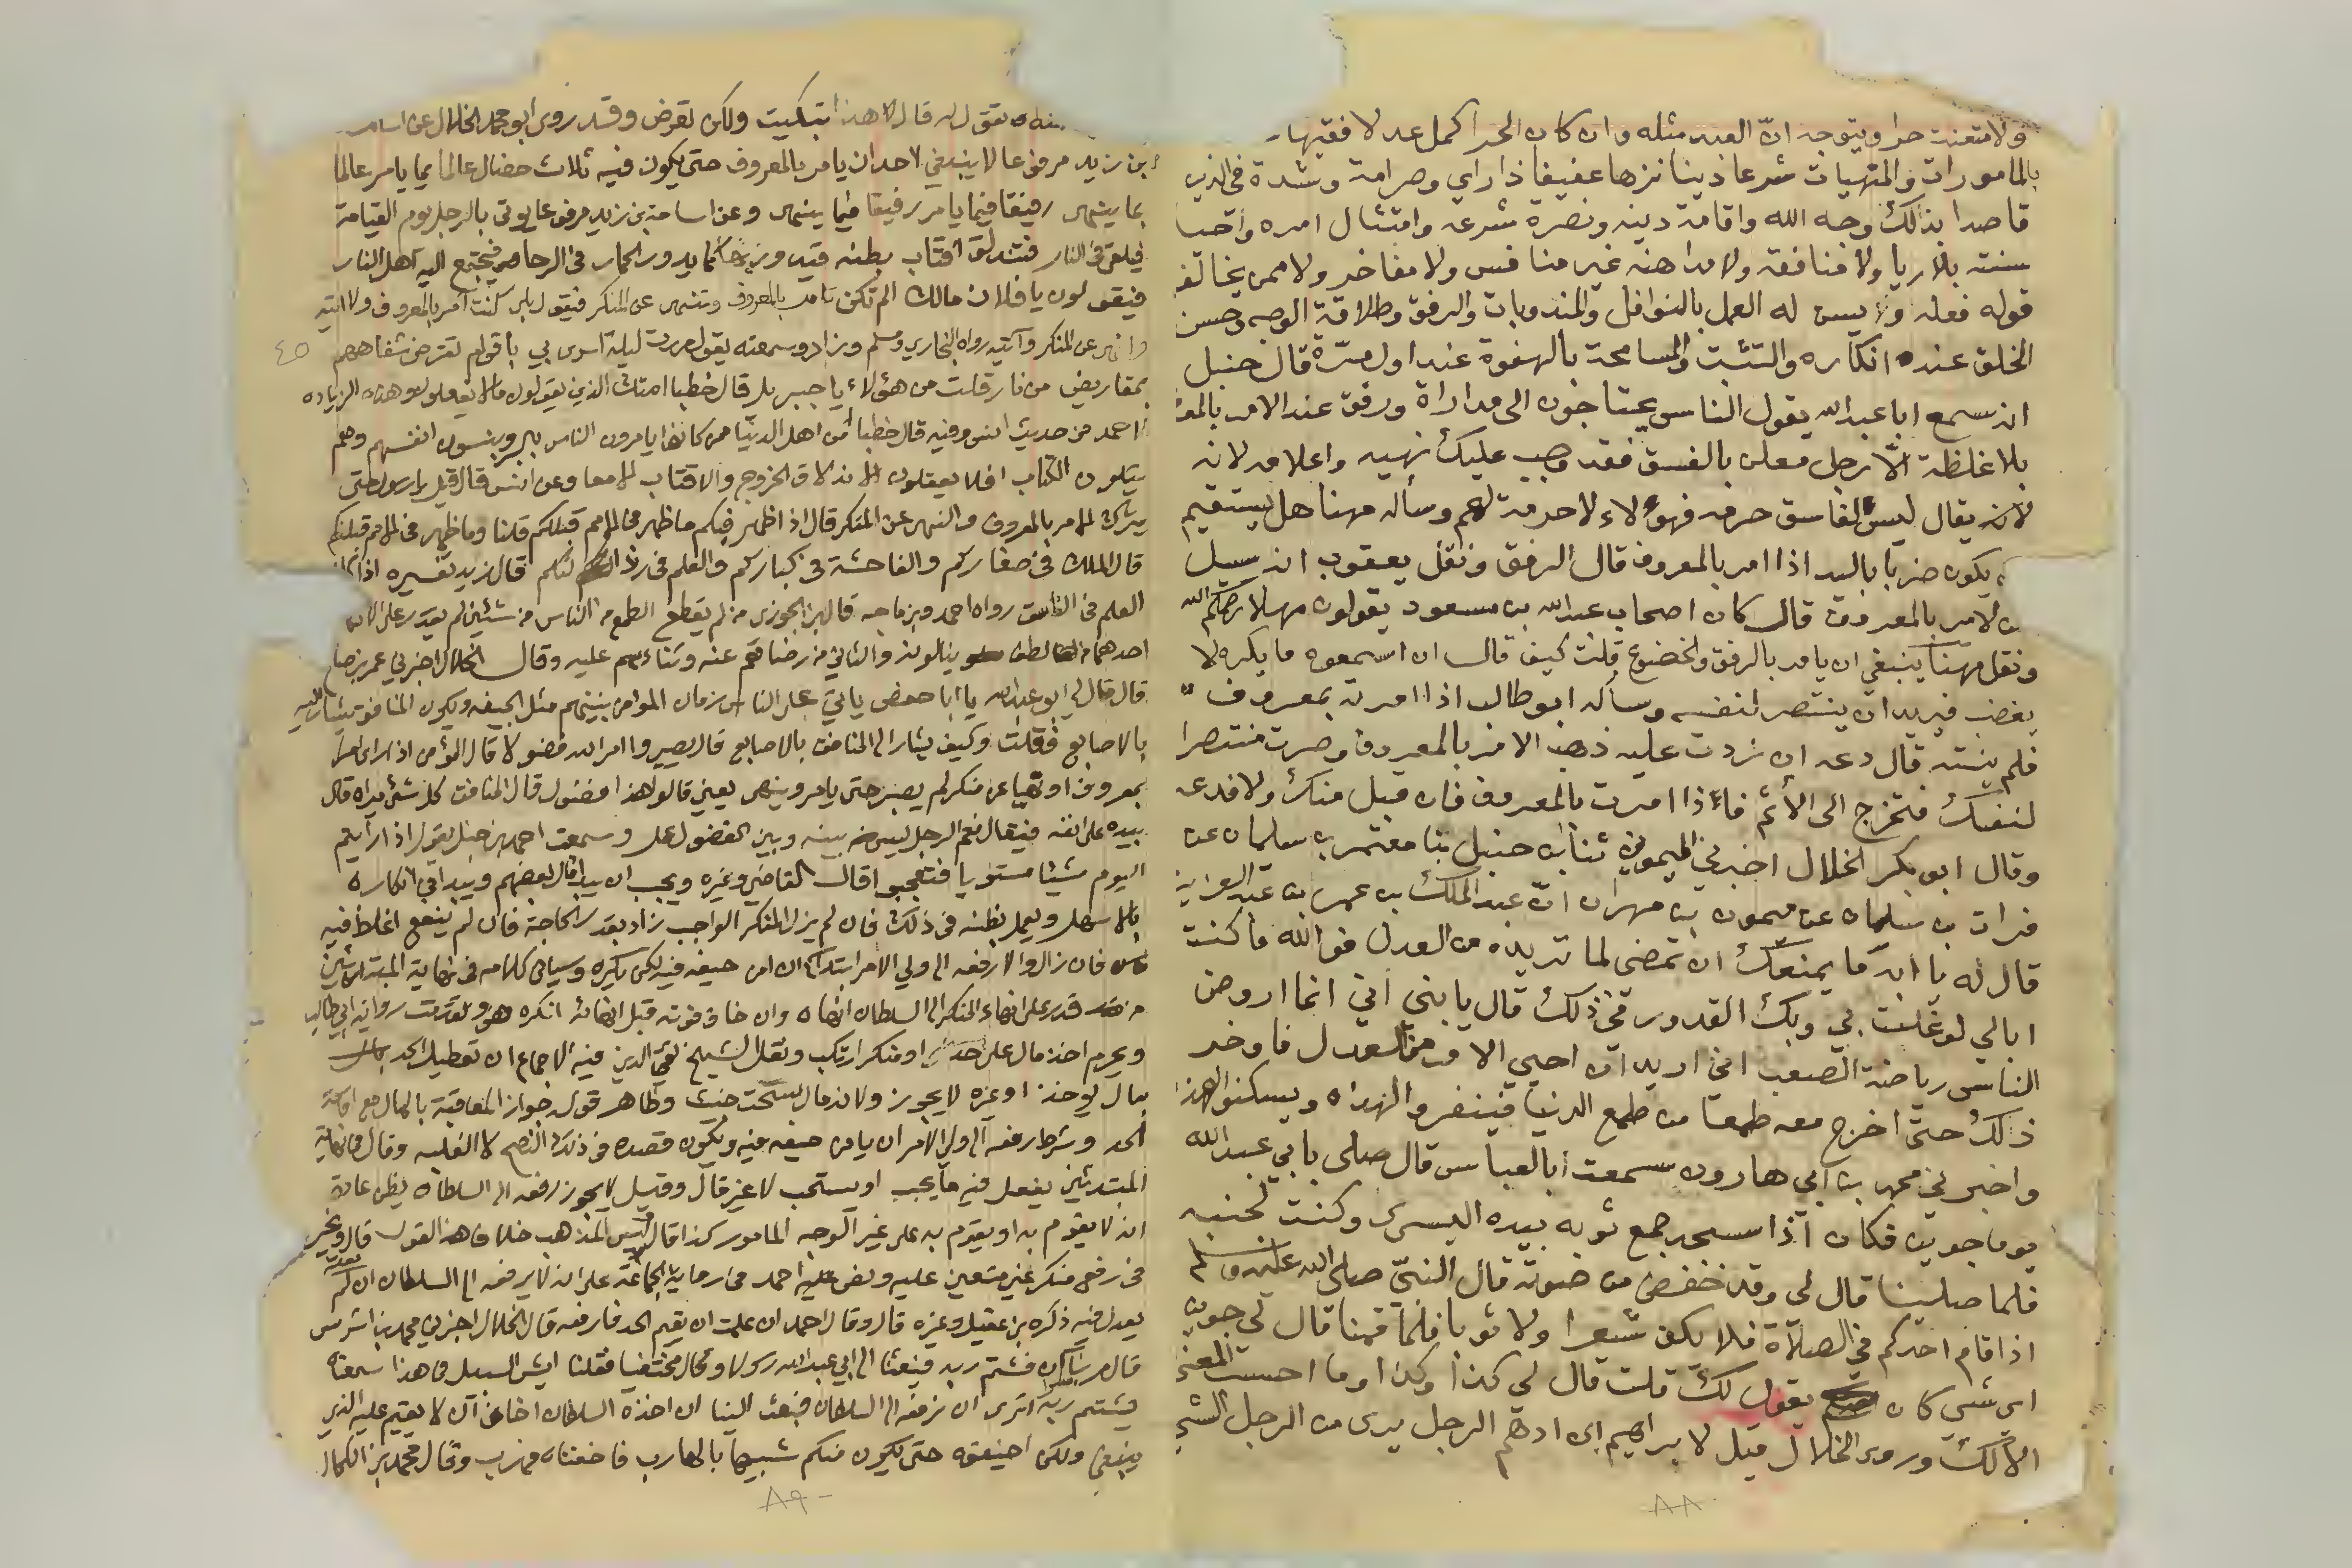 ولا متعنت حرا ويتوجه ان العبد مثله وان كان الحر اكمل عدلا فقيها
بالمامورات والمنهيات شرعا دينا نزها عفيفا ذا راي وصرامة وشدة في الدين
قاصدا بذلك وجه الله واقامة دينه ونصرة شرعه وامتثال امره واحيا
سنته بلا ريا ولا منافقة ولا مداهنة غير منافس ولا مفاخر ولا ممن يخالف
قوله فعله ويسن له العمل بالنوافل والمندوبات والرفق وطلاقة الوجه وحسن
الخلق عند انكاره والتثبت والمسامحة بالهفوة عند اول مرة قال حنبل
انه سمع ابا عبد الله يقول الناس يحتاجون الى مداراة ورفق عند الامر بالمعر
بلا غلظة الا رجل معلن بالفسق فقد وجب عليك نهيه واعلامه لانه
لانه يقال ليس لفاسق حرمه فهولاء لا حرمة لهم وسأله مهنا هل يستقيم
يكون ضربا باليد اذا امر بالمعروف قال الرفق ونقل يعقوب انه سيل
الامر بالمعروف قال كان اصحاب عبد الله بن مسعود يقولون مهلا رحمكم الله
ونقل مهنا ينبغي ان يامر بالرفق والخضوع قلت كيف قال ان اسمعوه ما يكره لا
يغضب فيريد ان ينتصر لنفسه وسأله ابو طالب اذا امرته بمعروف
فلم ينته قال دعه ان زدت عليه ذهب الامر بالمعروف وصرت منتصرا
لنفسك فتخرج الى الأثم فاذا امرت بالمعروف فان قبل منك والا فدعه
وقال ابو بكر الخلال اخبرني الميموني ثنا ابن حنبل ثنا معتمر بن سليمان عن
فرات بن سليمان عن ميمون بن مهران ان عبد الملك بن عمر بن عبد العزيز
قال له يا ابه ما يمنعك ان تمضي لما تريده من العدل فوالله ما كنت
ابالي لو غلت بي وبك القدور في ذلك قال يا بني اني انما اروض
الناس رياضة الصعب اني اريد ان احيي الامر من العدل فاوخر
ذلك حتى اخرج معه طمعا من طمع الدنيا فينفروا لهذه ويسكنوا لهذه
واخبرني محمد بن ابي هارون سمعت ابا العباس قال صلى بابي عبد الله
يوما جوين فكان اذا سجد جمع ثوبه بيده اليسرى وكنت بجنبه
فلما صلينا قال لي وقد خفض من صوته قال النبي صلى الله عليه وسلم
اذا قام احدكم في الصلاة فلا يكف شعرا ولا ثوبا فلما قمنا قال لي جوين
اي شيي كان يقول لك قلت قال لي كذا وكذا وما احسب المعنى
الا لك وروى الخلال قيل لابراهيم بن ادهم الرجل يرى من الرجل الشي
٨٨
يقول له قال لا هذا تبكيت ولكن تعرض وقد روى ابو محمد الخلال عن اسامة
بن زيد مرفوعا لا ينبغي لاحد ان يامر بالمعروف حتى يكون فيه ثلاث خصال عالما بما يامر عالما
بما ينهى رفيقا فيما يامر رفيقا فيما ينهى وعن اسامة بن زيد مرفوعا يوتى بالرجل يوم القيامة
فيلقى في النار فتندلق اقتاب بطنه فيدور بها كما يدور الحمار في الرحا فيجتمع اليه اهل النار
فيقولون يا فلان مالك الم تكن تامر بالمعروف وتنهى عن المنكر فيقول بلى كنت امر بالمعروف ولا اتيه
وانهى عن المنكر وآتيه رواه البخاري ومسلم وزاد وسمعته يقول مررت ليلة اسري بي باقوام تقرض شفاههم
٤٥
بمقاريض من نار قلت من هؤلاء يا جبريل قال خطبا امتك الذين يقولون مالا يفعلون وهذه الزياده
لاحمد من حديث انس وفيه قال خطبا من اهل الدنيا ممن كانوا يامرون الناس بالبر وينسون انفسهم وهم
يتلون الكتاب افلا يعقلون الاندلاق الخروج والاقتاب الامعا وعن انس قال قيل يا رسول الله متى
يترك الامر بالمعروف والنهي عن المنكر قال اذا ظهر فيكم ما ظهر في الامم قبلكم قلنا وما ظهر في الامم قبلنا
قال الملك في صغاركم والفاحشة في كباركم والعلم في رذالتكم قال زيد تفسيره اذا كان
العلم في الفاسق رواه احمد وبن ماجه قال بن الجوزي من لم يقطع الطمع من الناس من شيئين لم يقدر على الانكار
احدهما من لطف ينالونه والثاني من رضاهم عنه وثناءهم عليه وقال الخلال اخبرني عمر بن صالح
قال قال لي ابو عبد الله يا ابا حفص ياتي على الناس زمان المؤمن بينهم مثل الجيفه ويكون المنافق يشار اليه
بالاصابع فقلت وكيف يشار الى المنافق بالاصابع قال صيروا امر الله فضولا قال المؤمن اذا راى امرا
بمعروف او نهيا عن منكر لم يصبر حتى يامر وينهى يعني قالوا هذا فضول قال المنافق كل شيء يراه قال
بيده على انفه فيقال نعم الرجل ليس بينه وبين الفضول عمل وسمعت احمد بن حنبل يقول اذا رأيتم
اليوم شيئا مستويا فتعجبوا قال القاضي وغيره ويجب ان يبدا قال بعضهم ويبدا في انكاره
بالاسهل ويعمل بظنه في ذلك فان لم يزل المنكر الواجب زاد بقدر الحاجة فان لم ينفع اغلظ فيه
فان زال والا رفعه الى ولي الامر ابتدا ان امن حيفه فيه لكن يكره وسياتي كلامه في نهاية المبتدئين
من قدر على انهاء المنكر الى السلطان انهاه وان خاف فوته قبل انهائه انكره هو وتقدمت رواية ابي طالب
ويحرم اخذ مال على حد او منكر ارتكب ونقل الشيخ تقي الدين فيه الاجماع ان تعطيل الحد
بمال يوخذ او غيره لا يجوز ولانه مال سحت خبيث وظاهر قوله جواز المعاقبة بالمال مع اقامة
الحد وشرط رفعه الى ولي الامر ان يامن حيفه فيه ويكون قصده في ذلك النصح لا الغلبه وقال في نهاية
المبتدئين يفعل فيه ما يجب او يستحب لا غير قال وقيل لا يجوز رفعه الى السلطان يظن عادة
انه لا يقوم به او يقوم به على غير الوجه المامور كذا قال وليس المذهب خلاف هذا القول قال ويخير
في رفع منكر غير متعين عليه ونص عليه احمد في رواية الجماعة على انه لا يرفعه الى السلطان ان لم
يعدل فيه ذكره بن عقيل وغيره قال وقال احمد ان علمت ان يقيم الحد فارفعه قال الخلال اخبرني محمد بن اشرس
قال مر بنا سكران فشتم ربه فبعثنا الى ابي عبد الله رسولا وكان مختفيا فقلنا ايش السبيل في هذا سمعناه
يشتم ربه اترى ان نرفعه الى السلطان فبعث الينا ان اخذه السلطان اخاف ان لا يقيم عليه الذي
ينبغي ولكن اخيفوه حتى يكون منكم شبيها بالهارب فاخفناه فهرب وقال محمد بن الكحال
٨٩